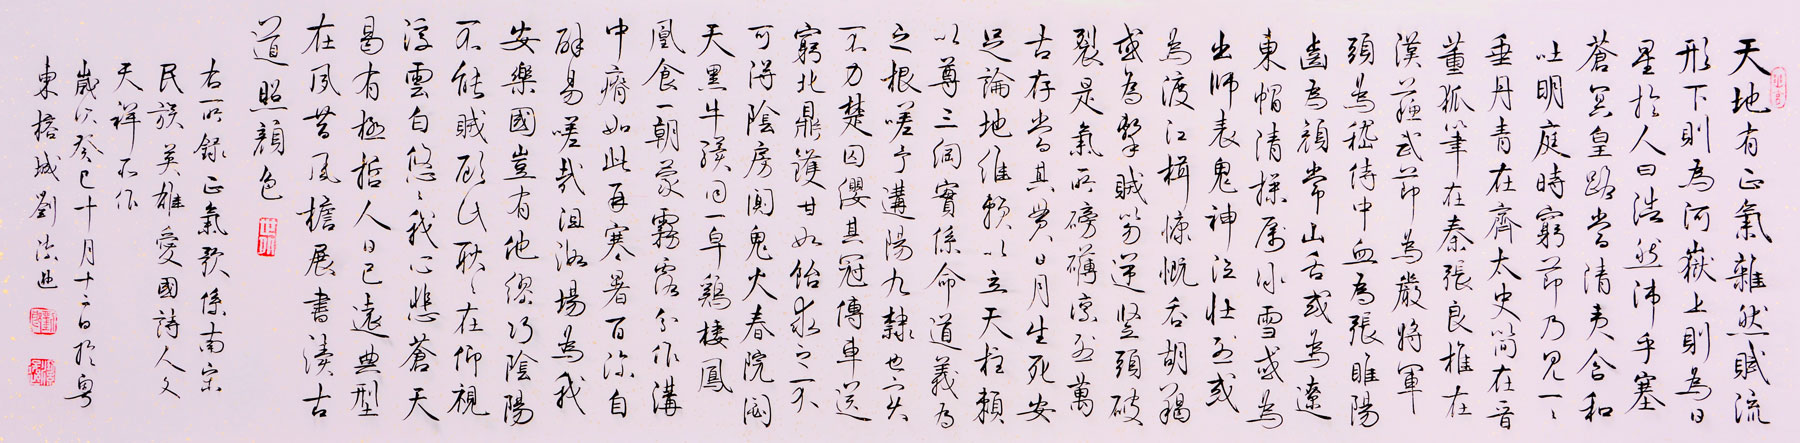 天地有正氣雜然賦流
形下則為河嶽上則為日
星於人曰浩然沛乎塞
蒼冥皇路當清夷含和
吐明庭時窮節乃見一一
垂丹青在齊太史簡在晉
董狐筆在秦張良椎在
漢蘇武節為嚴將軍
頭為嵇侍中血為張睢陽
齒為顏常山舌或為遼
東帽清操厲冰雪或為
出師表鬼神泣壯烈或
為渡江楫慷慨吞胡羯
或為擊賊笏逆豎頭破
裂是氣所磅礴凜烈萬
古存當其貫日月生死安
足論地維賴以立天柱賴
以尊三綱實係命道義為
之根嗟予遘陽九隸也實
不力楚囚纓其冠傳車送
窮北鼎鑊甘如飴求之不
可得陰房闃鬼火春院閟
天黑牛驥同一皁鷄棲鳳
凰食一朝蒙霧露分作溝
中瘠如此再寒暑百沴自
辟易嗟哉沮洳場為我
安樂國豈有他繆巧陰陽
不能賊顧此耿耿在仰視
浮雲白悠悠我心悲蒼天
曷有極哲人日已遠典型
在夙昔風檐展書讀古
道照顏色
右所錄正氣歌係南宋
民族英雄愛國詩人文
天祥所作
歲次癸巳十月十二日於粵
東榕城劉